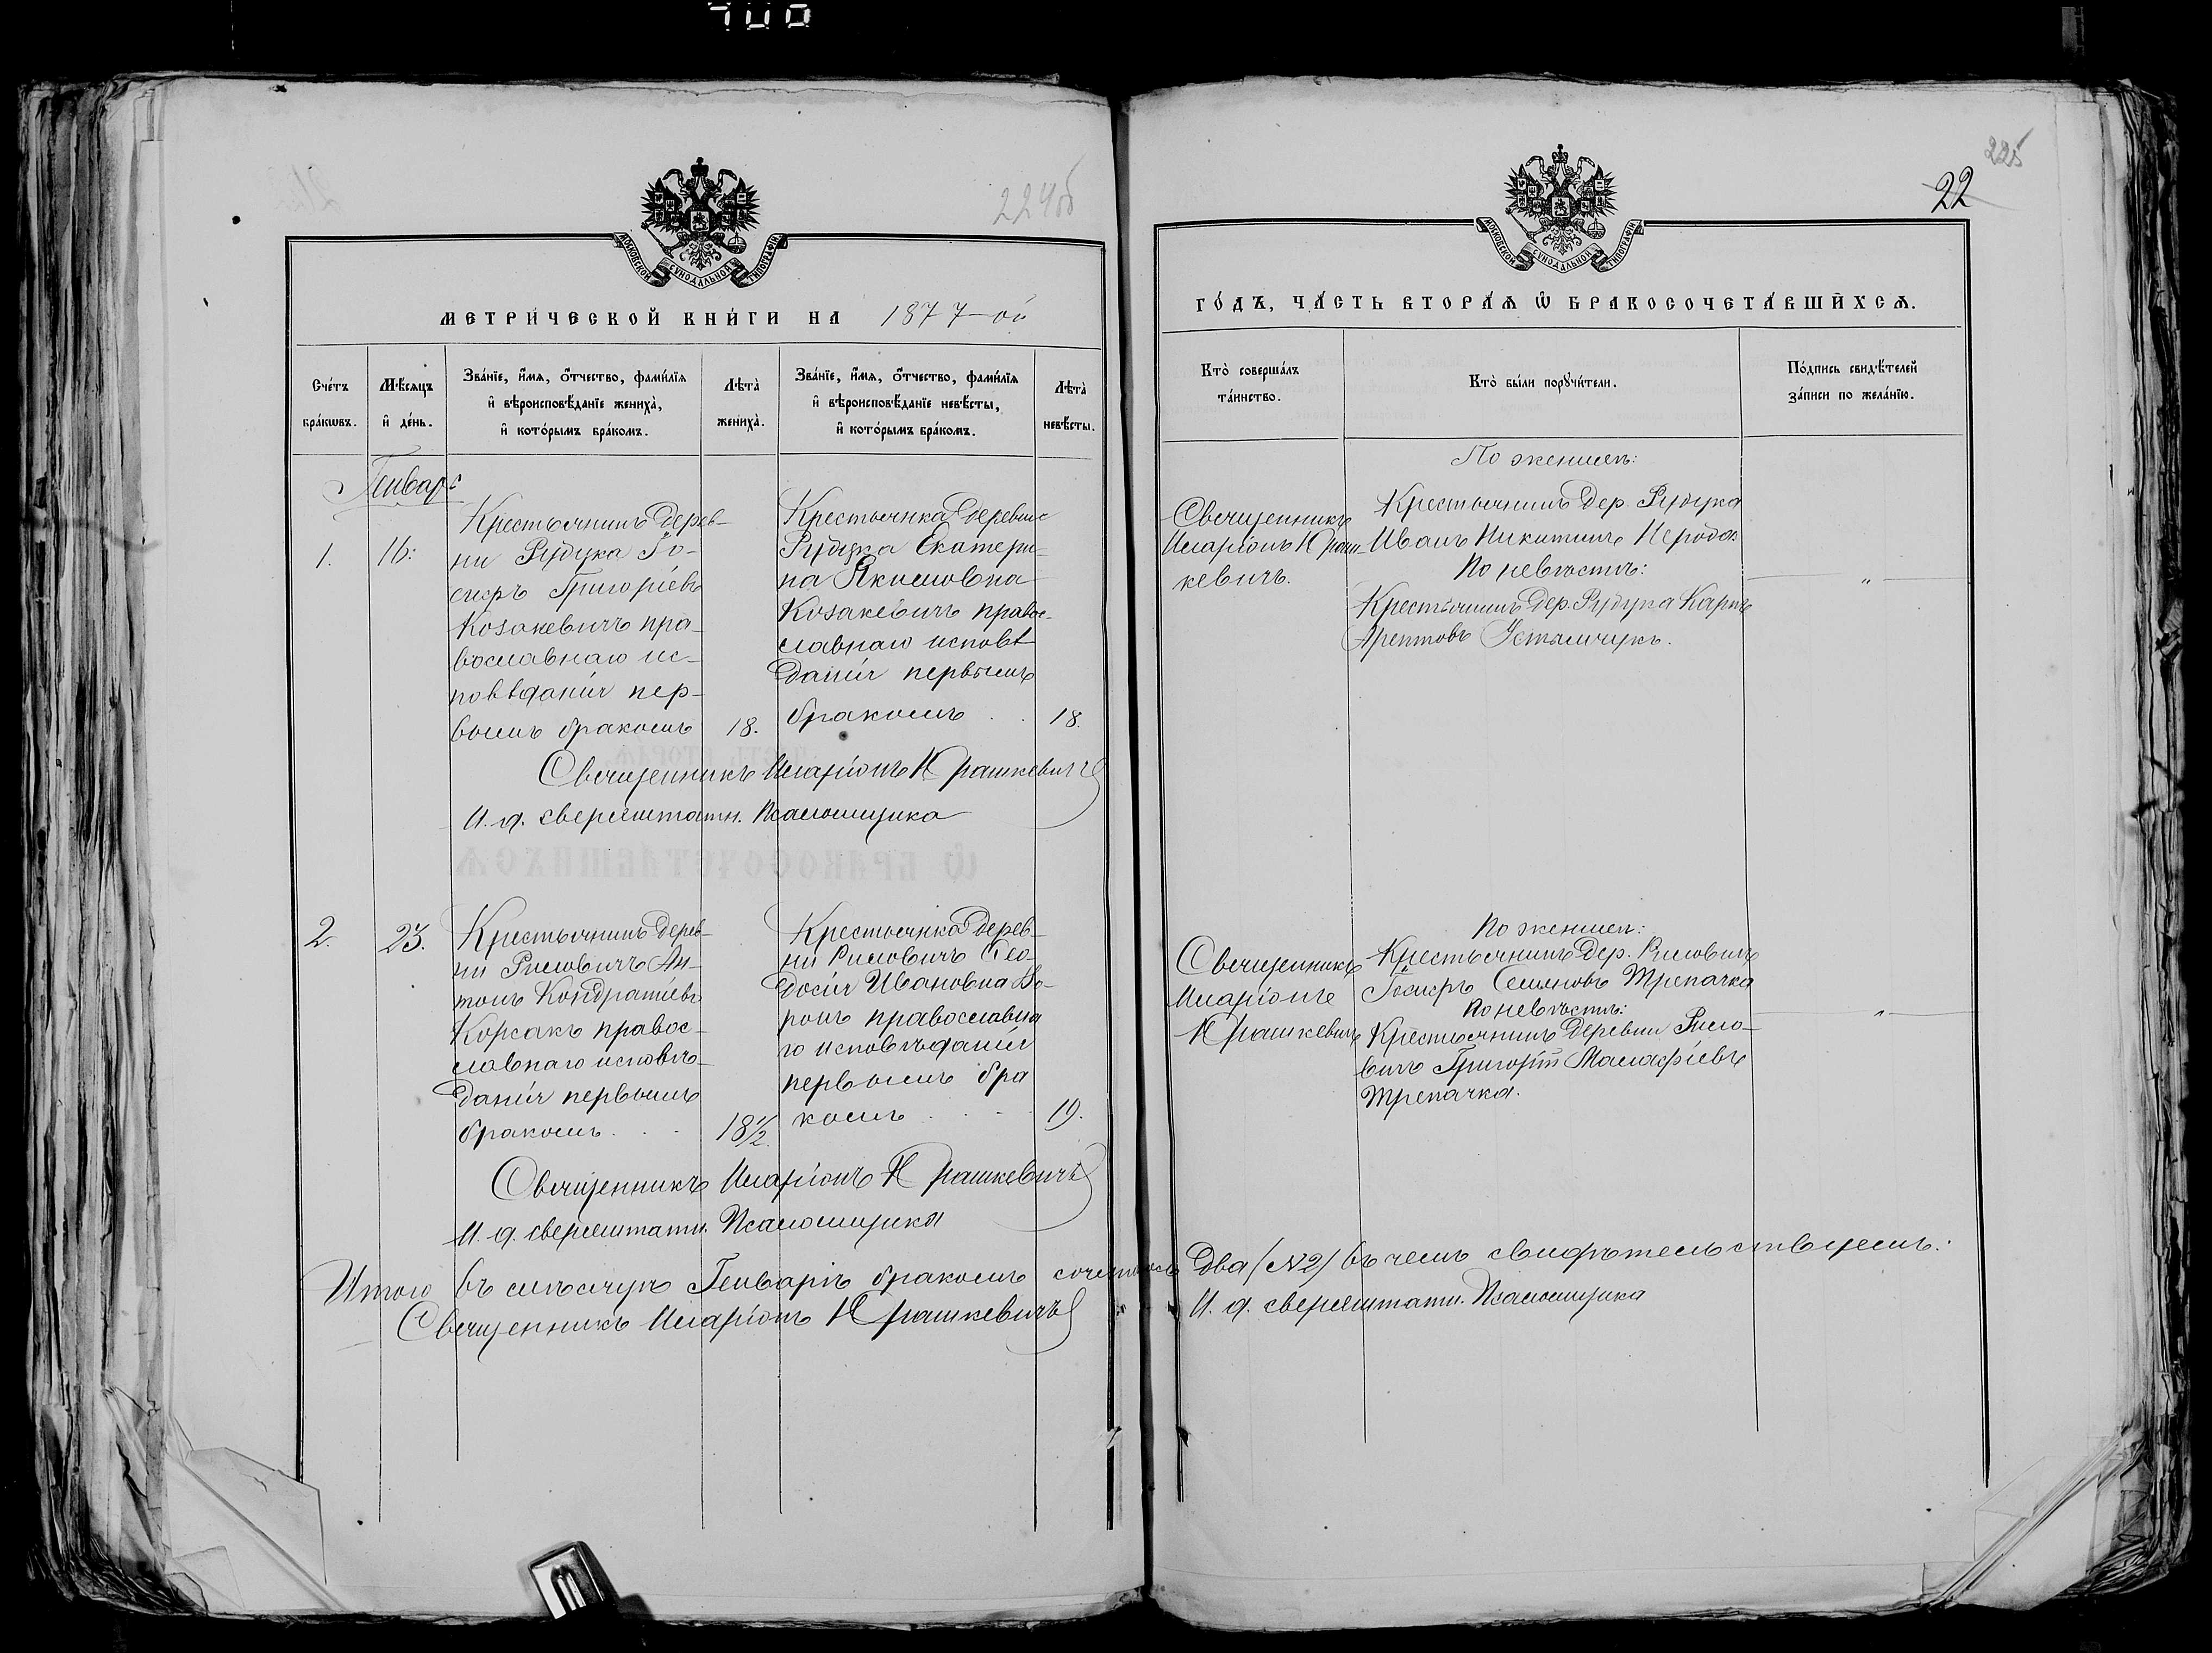 224 об
МОСКОВСКОЙ СУНОДАЛЬНОЙ ТИПОГРАФІИ
МЕТРИЧЕСКОЙ КНИГИ НА 1877-ой
Счетъ браковъ.
Мѣсяцъ и день.
Званіе, имя, отчество, фамилія
и вѣроисповѣданіе жениха,
и которымъ бракомъ.
Лѣта жениха.
Званіе, имя, отчество, фамилія
и вѣроисповѣданіе невѣсты,
и которымъ бракомъ.
Лѣта невѣсты.
Генварь
1.
16.
Крестьянинъ дерев-
ни Рудука Іо-
сифъ Григоріевъ
Козакевичъ пра-
вославнаго ис-
повѣданія пер-
вымъ бракомъ
18.
Крестьянка деревни
Рудука Екатери-
на Якимовна
Козакевичъ правос-
лавнаго исповѣ
данія первымъ
бракомъ
18.
Священникъ Иларіонъ Крашкевичъ
И. д. сверхштатн. Псаломщика
2.
23.
Крестьянинъ дерев-
ни Римовичъ Ан-
тонъ Кондратіевъ
Корсакъ правос-
лавнаго исповѣ-
данія первымъ
бракомъ
18 1/2.
Крестьянка дерев-
ни Римовичъ Ѳео-
досія Ивановна Во-
ронъ православна
го исповѣданія
первымъ бра
комъ
19.
Священникъ Иларіонъ Крашкевичъ
И. д. сверхштатн. Псаломщика
Итого въ мѣсяцѣ Генварѣ бракомъ сочеталось два (№2) въ чемъ свидѣтельствуемъ:
Священникъ Иларіонъ Крашкевичъ
И. д. сверхштатн. Псаломщика
225
22
МОСКОВСКОЙ СУНОДАЛЬНОЙ ТИПОГРАФІИ
ГОДЪ, ЧАСТЬ ВТОРАЯ Ѿ БРАКОСОЧЕТАВШИХСЯ.
Кто совершалъ
таинство.
Кто были поручители.
Подпись свидѣтелей
записи по желанію.
Священникъ
Иларіонъ Краш-
кевичъ.
По женихѣ:
Крестьянинъ дер. Рудука
Иванъ Никитинъ
По невѣстѣ:
Крестьянинъ дер. Рудука Карпъ
"
Священникъ
Иларіонъ
Крашкевичъ
По женихѣ:
Крестьянинъ дер. Римовичъ
Іосифъ Семеновъ Трепачка
По невѣстѣ:
Крестьянинъ деревни Римо-
вичъ Григорій Малафіевъ
Трепачка.
"